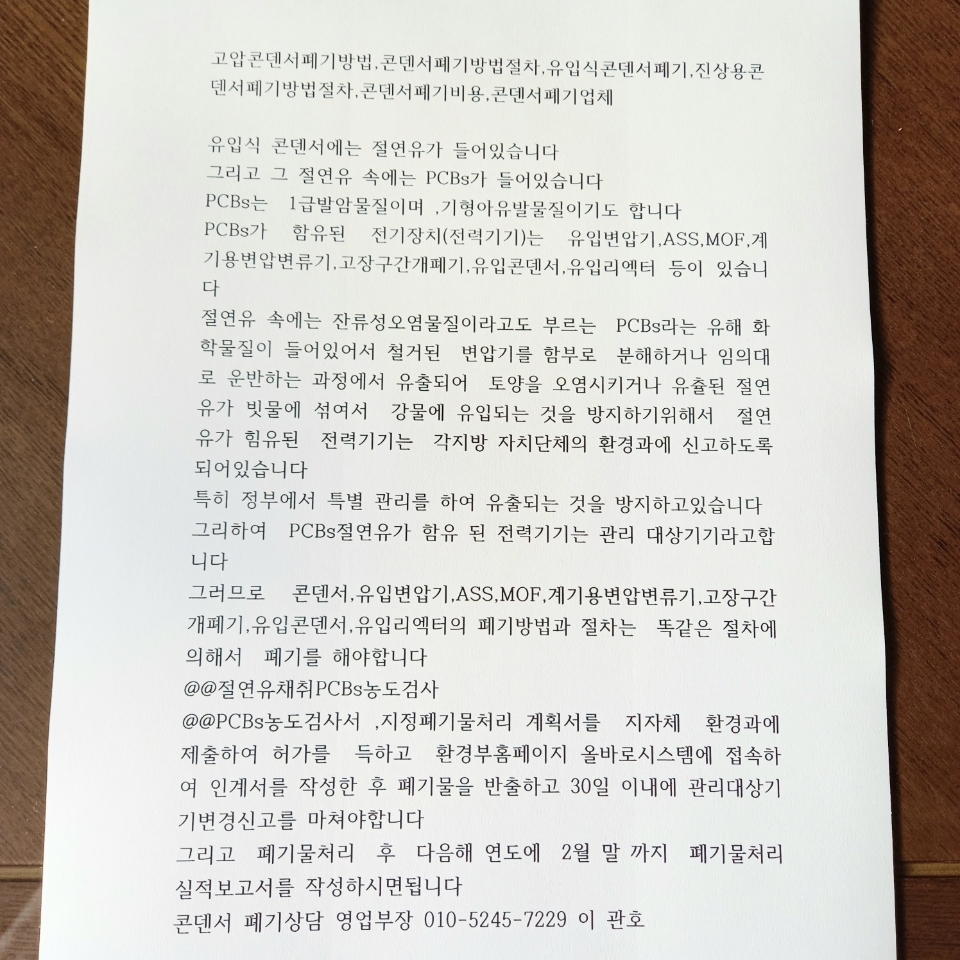 고압콘덴서폐기방법,콘덴서폐기방법절차,유입식콘덴서폐기,진상용콘
덴서폐기방법절차,콘덴서폐기비용,콘덴서폐기업체
유입식 콘덴서에는 절연유가 들어있습니다
그리고 그 절연유 속에는 PCBs가 들어있습니다
PCBs는 1급발암물질이며 ,기형아유발물질이기도 합니다
PCBs가 함유된 전기장치(전력기기)는 유입변압기,ASS,MOF,계
기용변압변류기,고장구간개폐기,유입콘덴서,유입리엑터 등이 있습니
다
절연유 속에는 잔류성오염물질이라고도 부르는 PCBs라는 유해 화
학물질이 들어있어서 철거된 변압기를 함부로 분해하거나 임의대
로 운반하는 과정에서 유출되어 토양을 오염시키거나 유츌된 절연
유가 빗물에 섞여서 강물에 유입되는 것을 방지하기위해서 절연
유가 힘유된 전력기기는 각지방 자치단체의 환경과에 신고하도록
되어있습니다
특히 정부에서 특별 관리를 하여 유출되는 것을 방지하고있습니다
그리하여 PCBs절연유가 함유 된 전력기기는 관리 대상기기라고합
니다
그러므로 콘덴서,유입변압기,ASS,MOF,계기용변압변류기,고장구간
개폐기,유입콘덴서,유입리엑터의 폐기방법과 절차는 똑같은 절차에
의해서 폐기를 해야합니다
@@절연유채취PCBs농도검사
@@PCBs농도검사서 ,지정폐기물처리 계획서를 지자체 환경과에
제출하여 허가를 득하고 환경부홈페이지 올바로시스템에 접속하
여 인계서를 작성한 후 폐기물을 반출하고 30일 이내에 관리대상기
기변경신고를 마쳐야합니다
그리고 폐기물처리 후 다음해 연도에 2월 말 까지 폐기물처리
실적보고서를 작성하시면됩니다
콘덴서 폐기상담 영업부장 010-5245-7229 이 관호